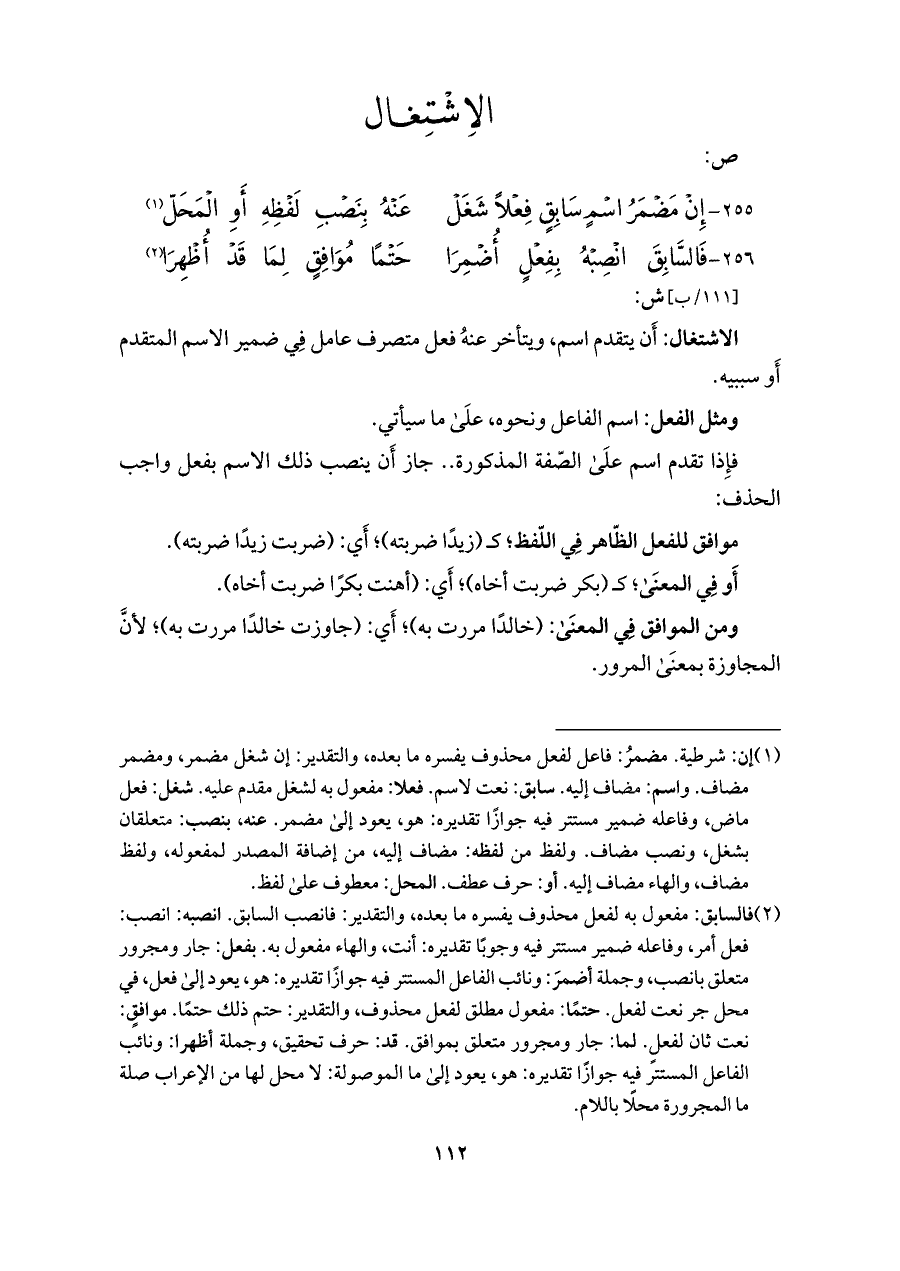 الاِشْتِغَال
ص:
٢٥٥-إِنْ مَضْمَرُ اسْمٍ سَابِقٍ فِعْلاً شَغَلْ عَنْهُ بِنَصْبِ لَفْظِهِ أَوِ الْمَحَلّ(١)
٢٥٦-فَالسَّابِقَ انْصِبْهُ بِفِعْلٍ أُضْمِرَا حَتْمًا مُوَافِقٍ لِمَا قَدْ أُظْهِرَا(٢)
[١١١/ب] ش:
الاشتغال: أَن يتقدم اسم، ويتأخر عنهُ فعل متصرف عامل فِي ضمير الاسم المتقدم
أَو سببيه.
ومثل الفعل: اسم الفاعل ونحوه، علَىٰ ما سيأتي.
فإِذا تقدم اسم علَىٰ الصّفة المذكورة.. جاز أَن ينصب ذلك الاسم بفعل واجب
الحذف:
موافق للفعل الظّاهر فِي اللّفظ؛ كـ (زيدًا ضربته)؛ أَي: (ضربت زيدًا ضربته).
أَو فِي المعنَىٰ؛ كـ (بكر ضربت أخاه)؛ أَي: (أهنت بكرًا ضربت أخاه).
ومن الموافق فِي المعنَىٰ: (خالدًا مررت به)؛ أَي: (جاوزت خالدًا مررت به)؛ لأنَّ
المجاوزة بمعنَىٰ المرور.
(١)إن: شرطية. مضمرُ: فاعل لفعل محذوف يفسره ما بعده، والتقدير: إن شغل مضمر، ومضمر
مضاف. واسم: مضاف إليه. سابق: نعت لاسم. فعلا: مفعول به لشغل مقدم عليه. شغل: فعل
ماض، وفاعله ضمير مستتر فيه جوازًا تقديره: هو، يعود إلىٰ مضمر. عنه، بنصب: متعلقان
بشغل، ونصب مضاف. ولفظ من لفظه: مضاف إليه، من إضافة المصدر لمفعوله، ولفظ
مضاف، والهاء مضاف إليه. أو: حرف عطف. المحل: معطوف علىٰ لفظ.
(٢)فالسابق: مفعول به لفعل محذوف يفسره ما بعده، والتقدير: فانصب السابق. انصبه: انصب:
فعل أمر، وفاعله ضمير مستتر فيه وجوبًا تقديره: أنت، والهاء مفعول به. بفعل: جار ومجرور
متعلق بانصب، وجملة أضمرَ: ونائب الفاعل المستتر فيه جوازًا تقديره: هو، يعود إلىٰ فعل، في
محل جر نعت لفعل. حتمًا: مفعول مطلق لفعل محذوف، والتقدير: حتم ذلك حتمًا. موافقٍ:
نعت ثان لفعل. لما: جار ومجرور متعلق بموافق. قد: حرف تحقيق، وجملة أظهرا: ونائب
الفاعل المستتر فيه جوازًا تقديره: هو، يعود إلىٰ ما الموصولة: لا محل لها من الإعراب صلة
ما المجرورة محلًا باللام.
١١٢